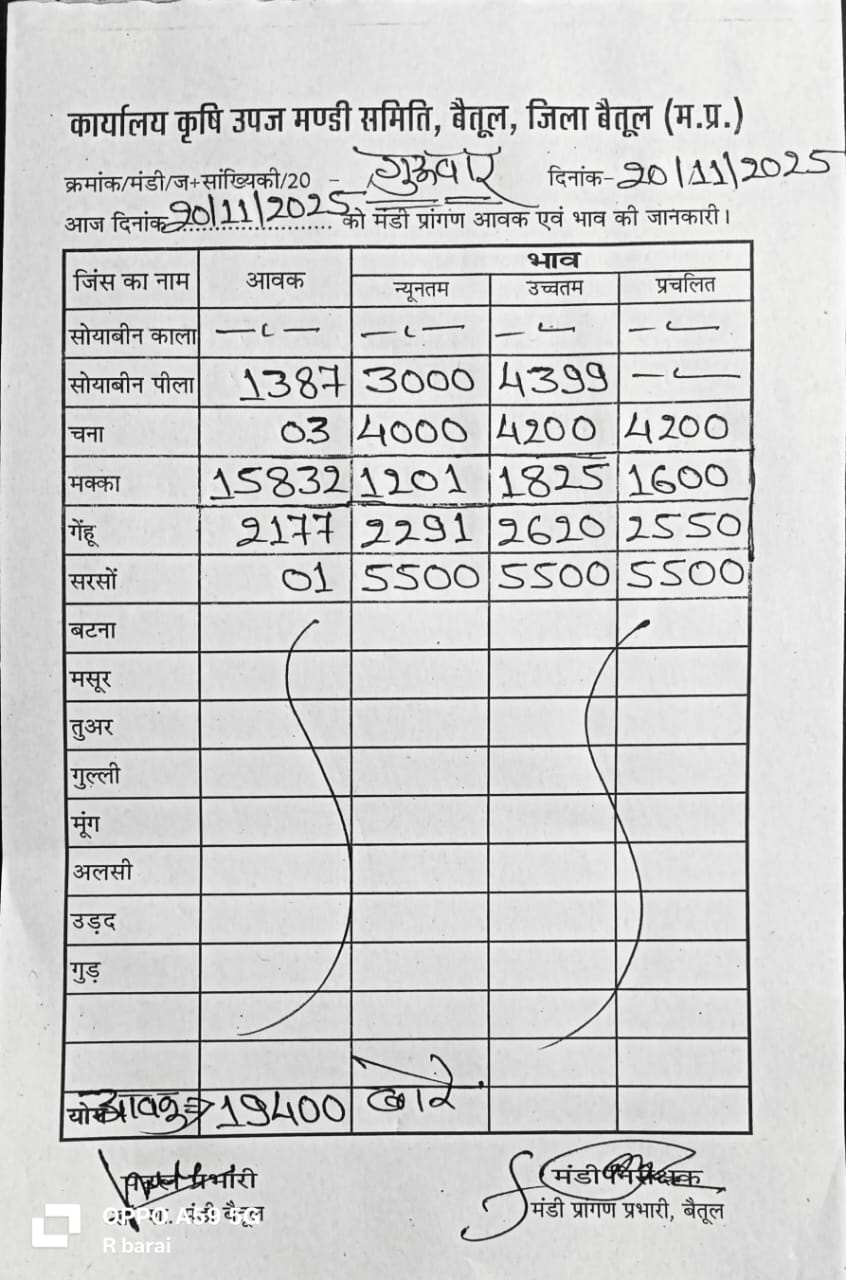 कार्यालय कृषि उपज मण्डी समिति, बैतूल, जिला बैतूल (म.प्र.)
क्रमांक/मंडी/ज+सांख्यिकी/20 - गुरूवार दिनांक- 20/11/2025
आज दिनांक 20/11/2025 को मंडी प्रांगण आवक एवं भाव की जानकारी।
जिंस का नाम आवक भाव
न्यूनतम उच्चतम प्रचलित
सोयाबीन काला -- -- -- --
सोयाबीन पीला 1387 3000 4399 --
चना 03 4000 4200 4200
मक्का 15832 1201 1825 1600
गेंहू 2177 2291 2620 2550
सरसों 01 5500 5500 5500
बटना
मसूर
तुअर
गुल्ली
मूंग
अलसी
उड़द
गुड़
योग आवक => 19400 बोरे
प्रभारी मंडी
मंडी बैतूल मंडी प्रांगण प्रभारी, बैतूल
R barai